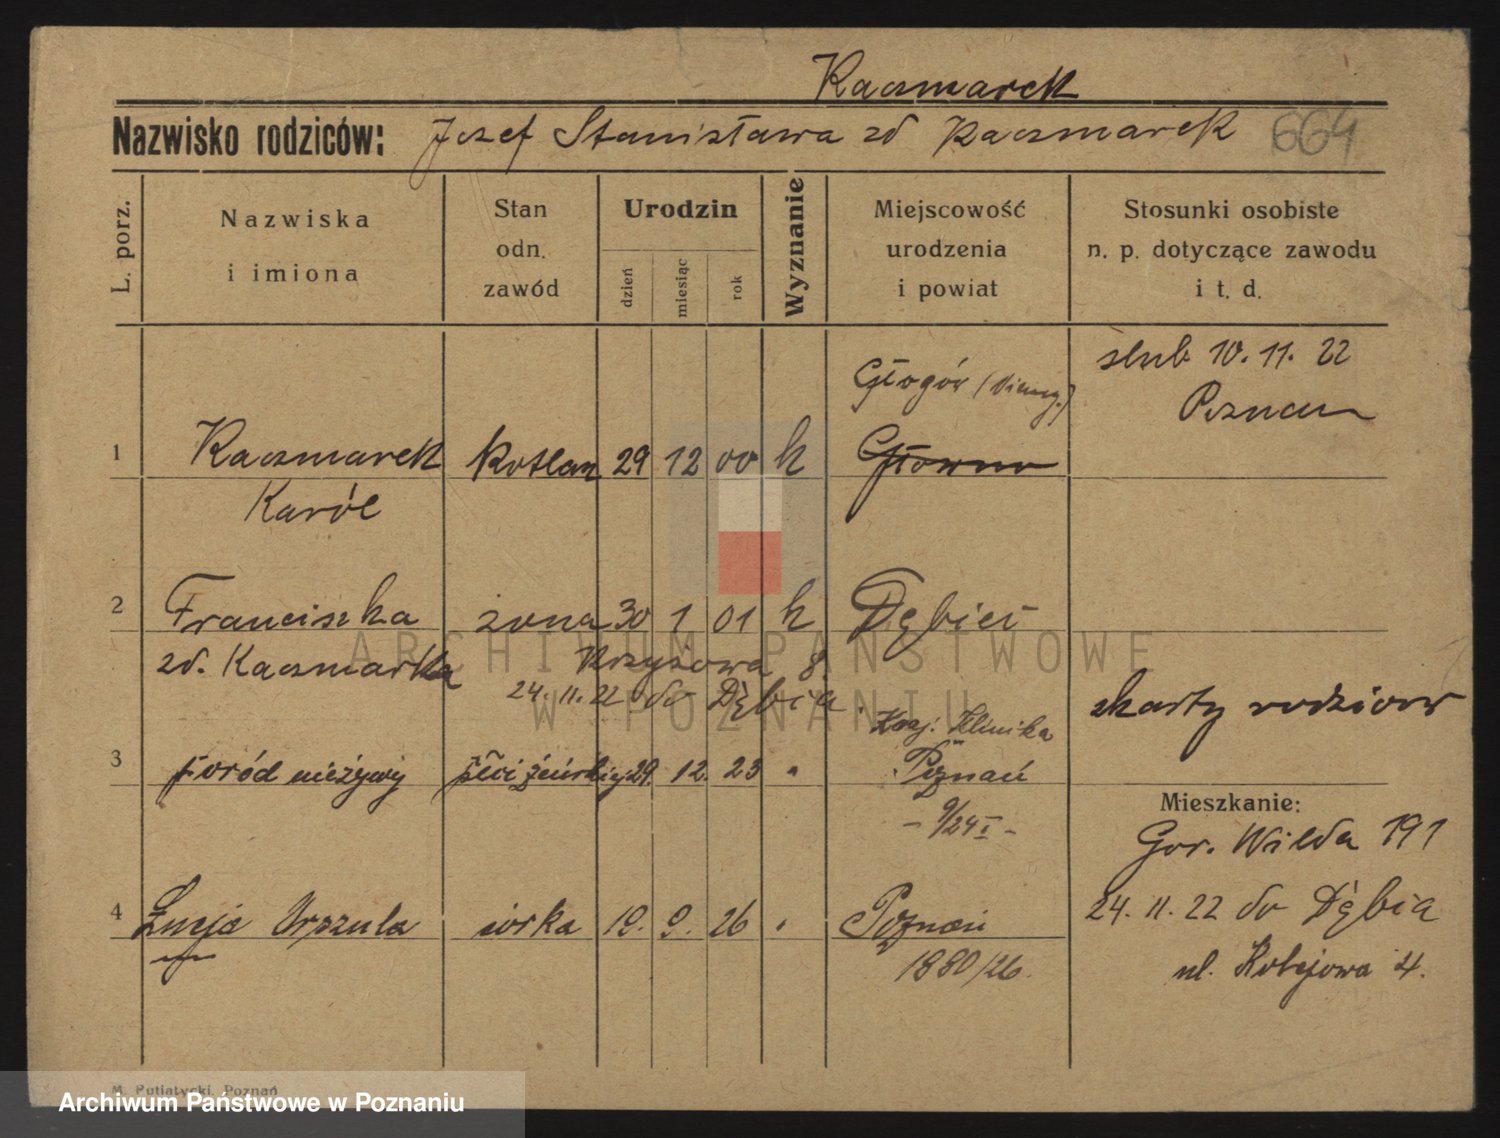 Kaczmarek
Nazwisko rodziców: Józef Stanisława zd Kaczmarek 664
L. porz.
Nazwiska
i imiona
Stan
odn.
zawód
Urodzin
dzień
miesiąc
rok
Wyznanie
Miejscowość
urodzenia
i powiat
Stosunki osobiste
n. p. dotyczące zawodu
i t. d.
ślub 10. 11. 22
Poznań
Głogów
1 Kaczmarek kotlarz 29 12 00 k Główno
Karól
2 Franciszka żona 30 1 01 k Dębiec
zd. Kaczmarka Krzyżowa 8.
24. 11. 22 do Dębia
z karty rodziców
Klinika
3 Poród nieżywy płci żeńskiej 29. 12. 23 " Poznań
- 9/24 I -
Mieszkanie:
Gór. Wilda 191
24. 11. 22 do Dębia
ul. Kolejowa 4.
4 Łucja Urszula córka 19. 9. 26 " Poznań
1880/26.
M. Putiatycki, Poznań
ARCHIWUM PAŃSTWOWE
W POZNANIU
Archiwum Państwowe w Poznaniu